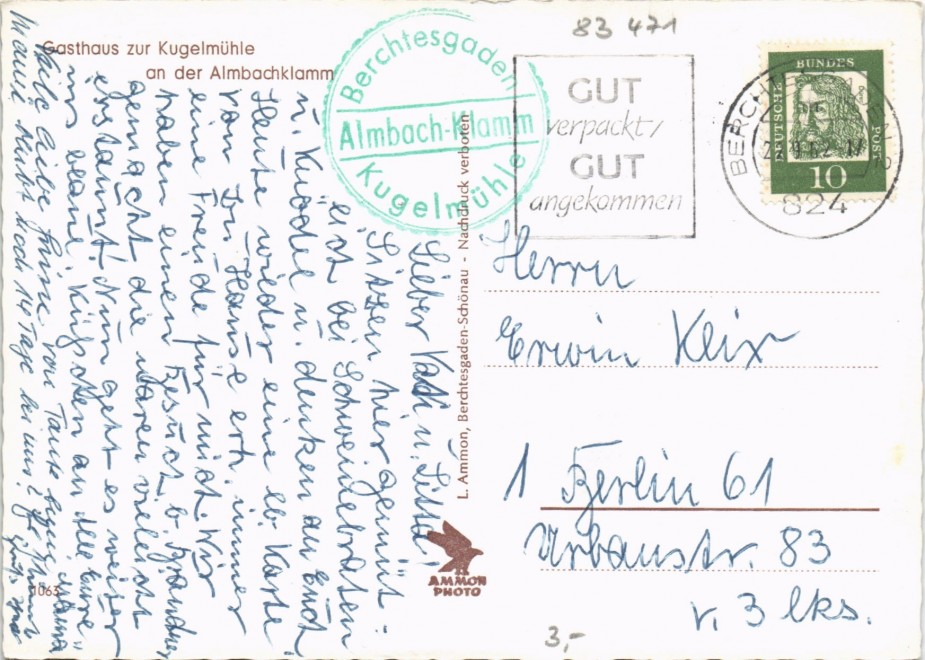 83 471
Gasthaus zur Kugelmühle
an der Almbachklamm
Berchtesgaden
Almbach-Klamm
Kugelmühle
GUT
verpackt/
GUT
angekommen
BERCHTESGADEN
824
DEUTSCHE
BUNDES
POST
10
Lieber Vati u.
Sitzen hier gemüt
lich bei Schweinebraten
u. Knödel u. denken an Euch
Heute wieder eine lb. Karte
von Dir, Hans erh. immer
eine Freude für mich. Wir
haben einen Besuch b.
gemacht die waren vielleicht
erstaunt. Nun geht es weiter
ins blaue. Küßchen an alle Eure
Mama
Viele liebe Grüße von Tante
Mama bleibt noch 14 Tage bei uns!
L. Ammon, Berchtesgaden-Schönau - Nachdruck verboten
AMMON
PHOTO
1063
Herrn
Erwin Klix
1 Berlin 61
Urbanstr. 83
v. 3 lks.
3,-